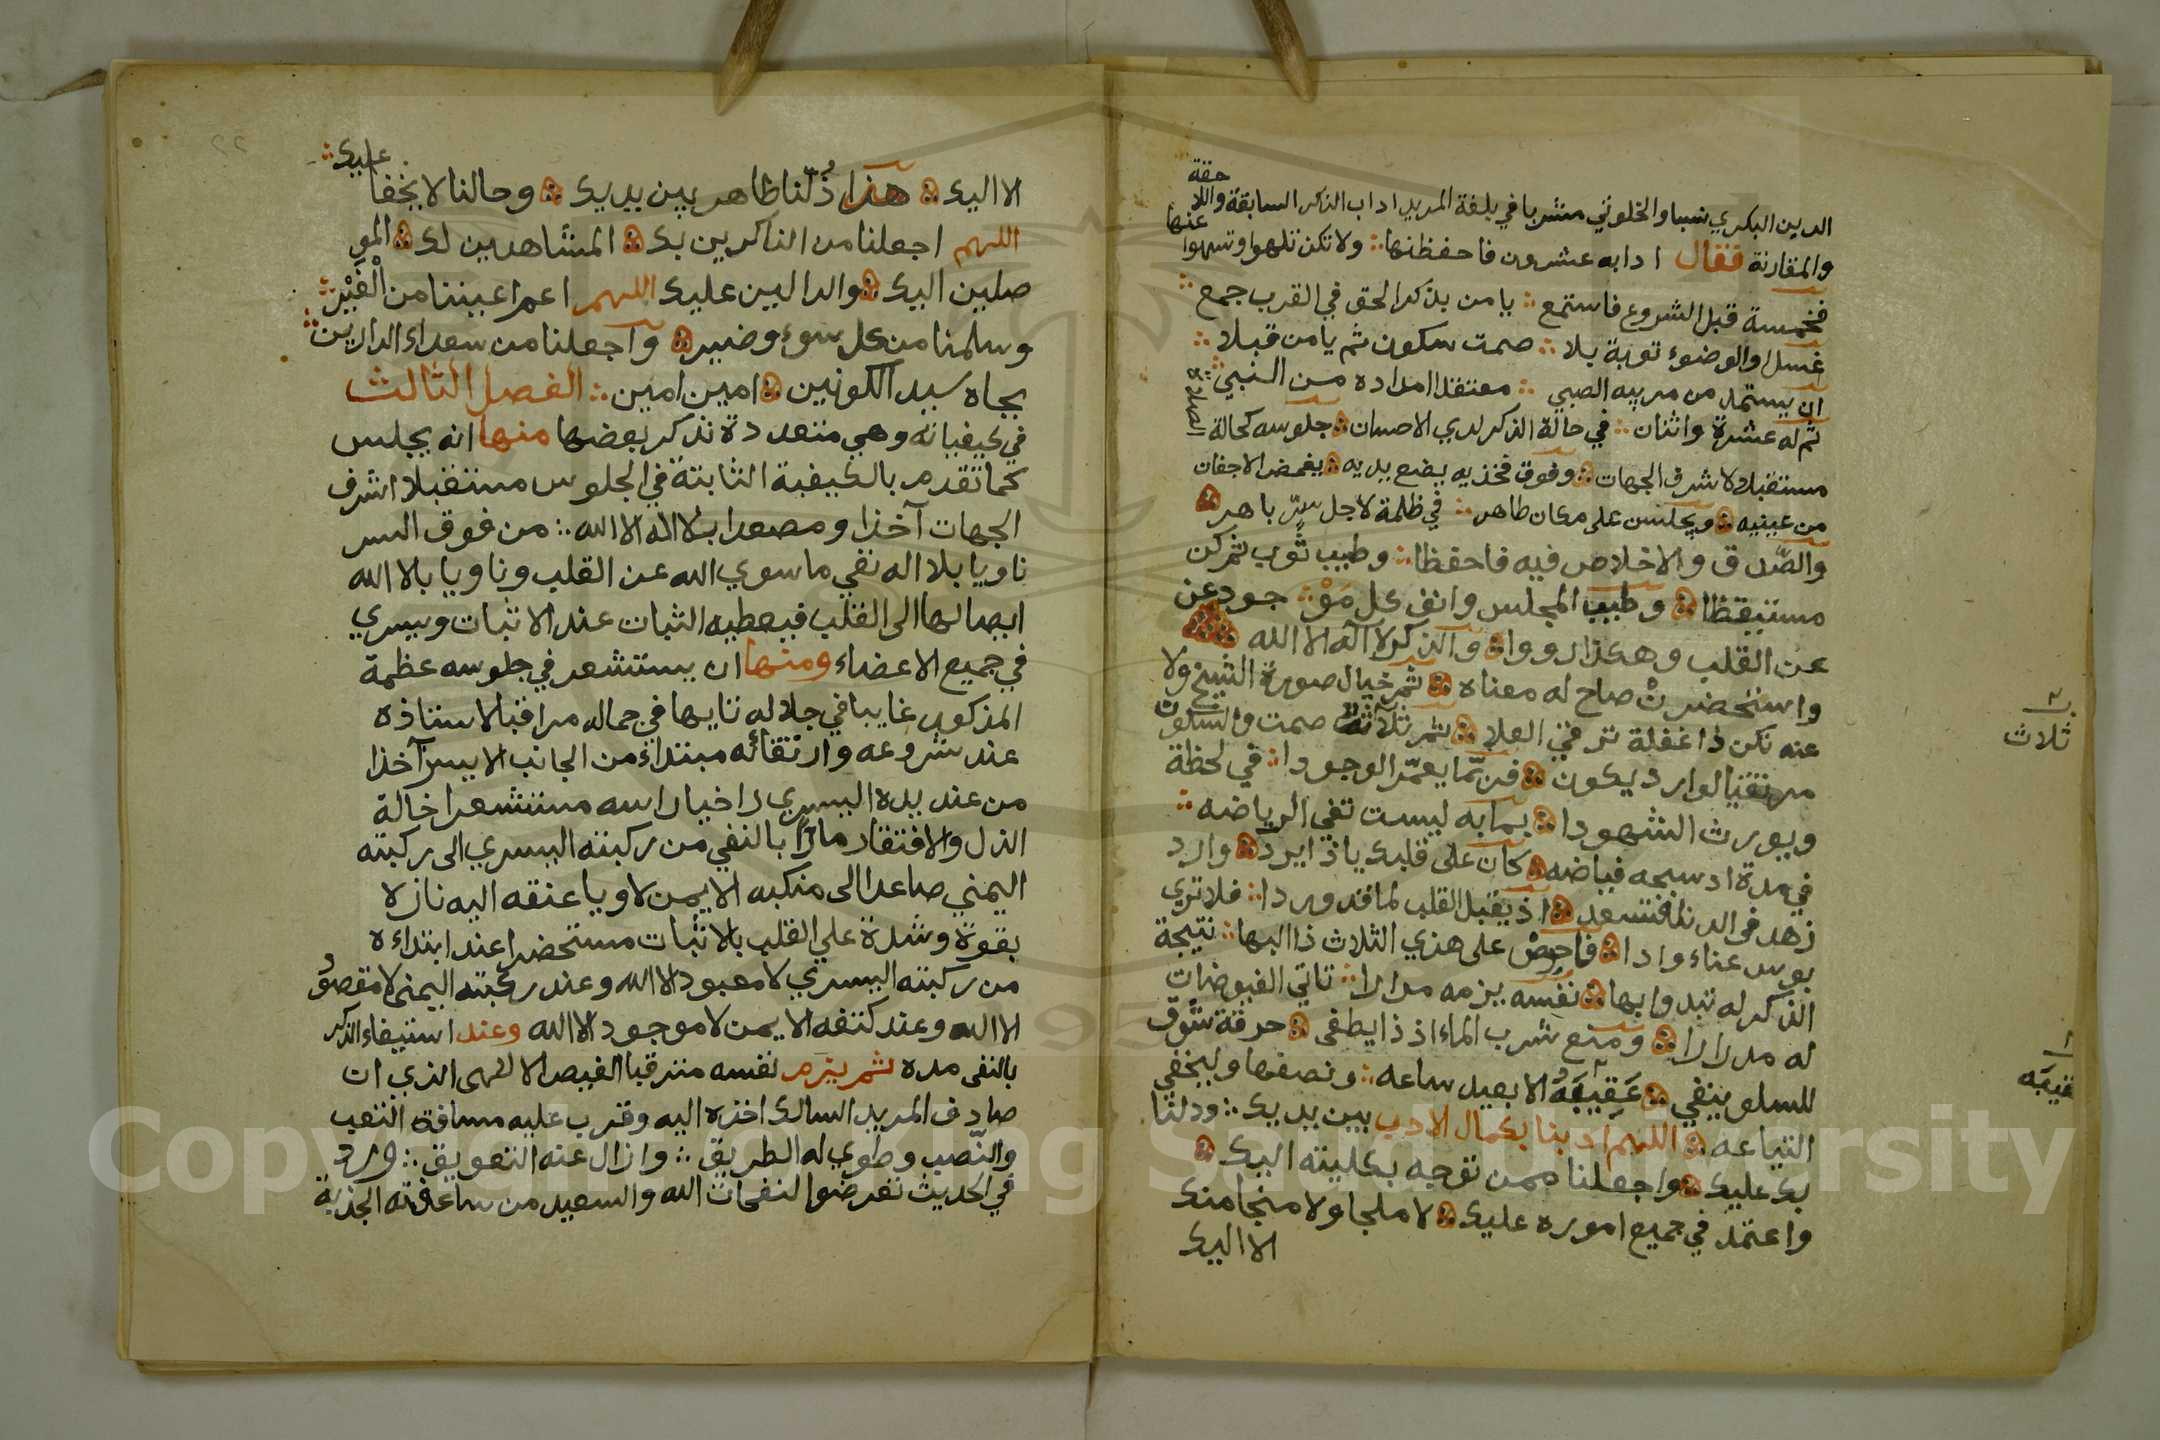 الدين البكري نسبا والخلوتي مشربا في بلغة المريد اداب الذكر السابقة واللا
حقة
والمقارنة فقال ادابه عشرون فاحفظنها ولا تكن تلهوا وتسهوا
عنها
فخمسة قبل الشروع فاستمع يا من بذكر الحق في القرب جمع
غسل او الوضوء توبة بلا صمت سكون ثم يا من قبلا
ان يستمد من مربيه الصبي معتقدا امداده من النبي
ثم له عشرة واثنان في حالة الذكر لدي الاحسان جلوسه كحالة
الصلاة
مستقبلا لاشرف الجهات وفوق فخذيه يضع يديه يغمض الاجفان
من عينيه ويجلسن على مكان طاهر في ظلمة لاجل سر باهر
والصدق والاخلاص فيه فاحفظا وطيب ثوب ثم كن
مستيقظا وطيب المجلس وانف كل جود عن
عن القلب وهكذا رووا والذكر لا اله الا الله
واستحضرن صاح له معناه ثم خيال صورة الشيخ ولا
عنه تكن ذا غفلة ترقي العلا ثم ثلاثة صمت والسكون
مرتقبا لوارد يكون فربما يعمر الوجودا في لحظة
ويورث الشهودا بما به ليست تفي الرياضه
في مدة اذ سبحه فياضه كان على قلبك يا ذا يرد وارد
زهد في الدنا فتسعد اذ يقبل القلب لما قد وردا فلا تري
بوس عناء وادا فاحرص على هذي الثلاث ذا البها نتيجة
الذكر له تبدوا بها نفسه يزمه مرارا تاتي الفيوضات
له مدرارا ومنع شرب الماء اذ ذا يطفى حرقة شوق
للسلو ينفي عقيبه الا بعيد ساعه ونصفها وليخفي
التياعه اللهم ادبنا بكمال الادب بين يديك ودلنا
بك عليك واجعلنا ممن توجه بكليته اليك
واعتمد في جميع اموره عليك لا ملجا ولا منجا منك
الا اليك
ثلاث
الا اليك هذا ذلنا ظاهر بين يديك وحالنا لا يخفا
عليك
اللهم اجعلنا من الذاكرين بك المشاهدين لك المو
صلين اليك والدالين عليك اللهم اعم اعيننا من الغير
وسلمنا من كل سوء وضير واجعلنا من سعداء الدارين
بجاه سيد الكونين امين امين الفصل الثالث
في كيفياته وهي متعددة نذكر بعضها منها انه يجلس
كما تقدم بالكيفية الثابتة في الجلوس مستقبلا اشرف
الجهات آخذا ومصعدا بلا اله الا الله من فوق السر
ناويا بلا اله نفي ما سوي الله عن القلب وناويا بالا الله
ايصالها الى القلب فيعطيه الثبات عند الاثبات ويسري
في جميع الاعضاء ومنها ان يستشعر في جلوسه عظمة
المذكور غايبا في جلاله تايها في جماله مراقبا لاستاذه
عند شروعه وارتقائه مبتداء من الجانب الايسر آخذا
من عند يده اليسري راخيا راسه مستشعرا خالة
الذل والافتقار مارا بالنفي من ركبته اليسري الى ركبته
اليمني صاعدا الى منكبه الايمن لاويا عنقه اليه نازلا
بقوة وشدة علي القلب بالاثبات مستحضرا عند ابتداءه
من ركبته اليسري لا معبود الا الله وعند ركبته اليمنى لا مقصود
الا الله وعند كتفه الايمن لا موجود الا الله وعند استيفاء الذكر
بالنفى مده ثم يزم نفسه مترقبا الفيض الالهى الذي ان
صادف المريد السالك اخذه اليه وقرب عليه مسافة التعب
والنصب وطوي له الطريق وازال عنه التعويق ورد
في الحديث تعرضوا لنفحات الله والسعيد من ساعدته الجذبة
Copyright © King Saud University